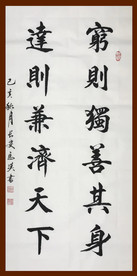 窮則獨善其身
達則兼濟天下
己亥秋月